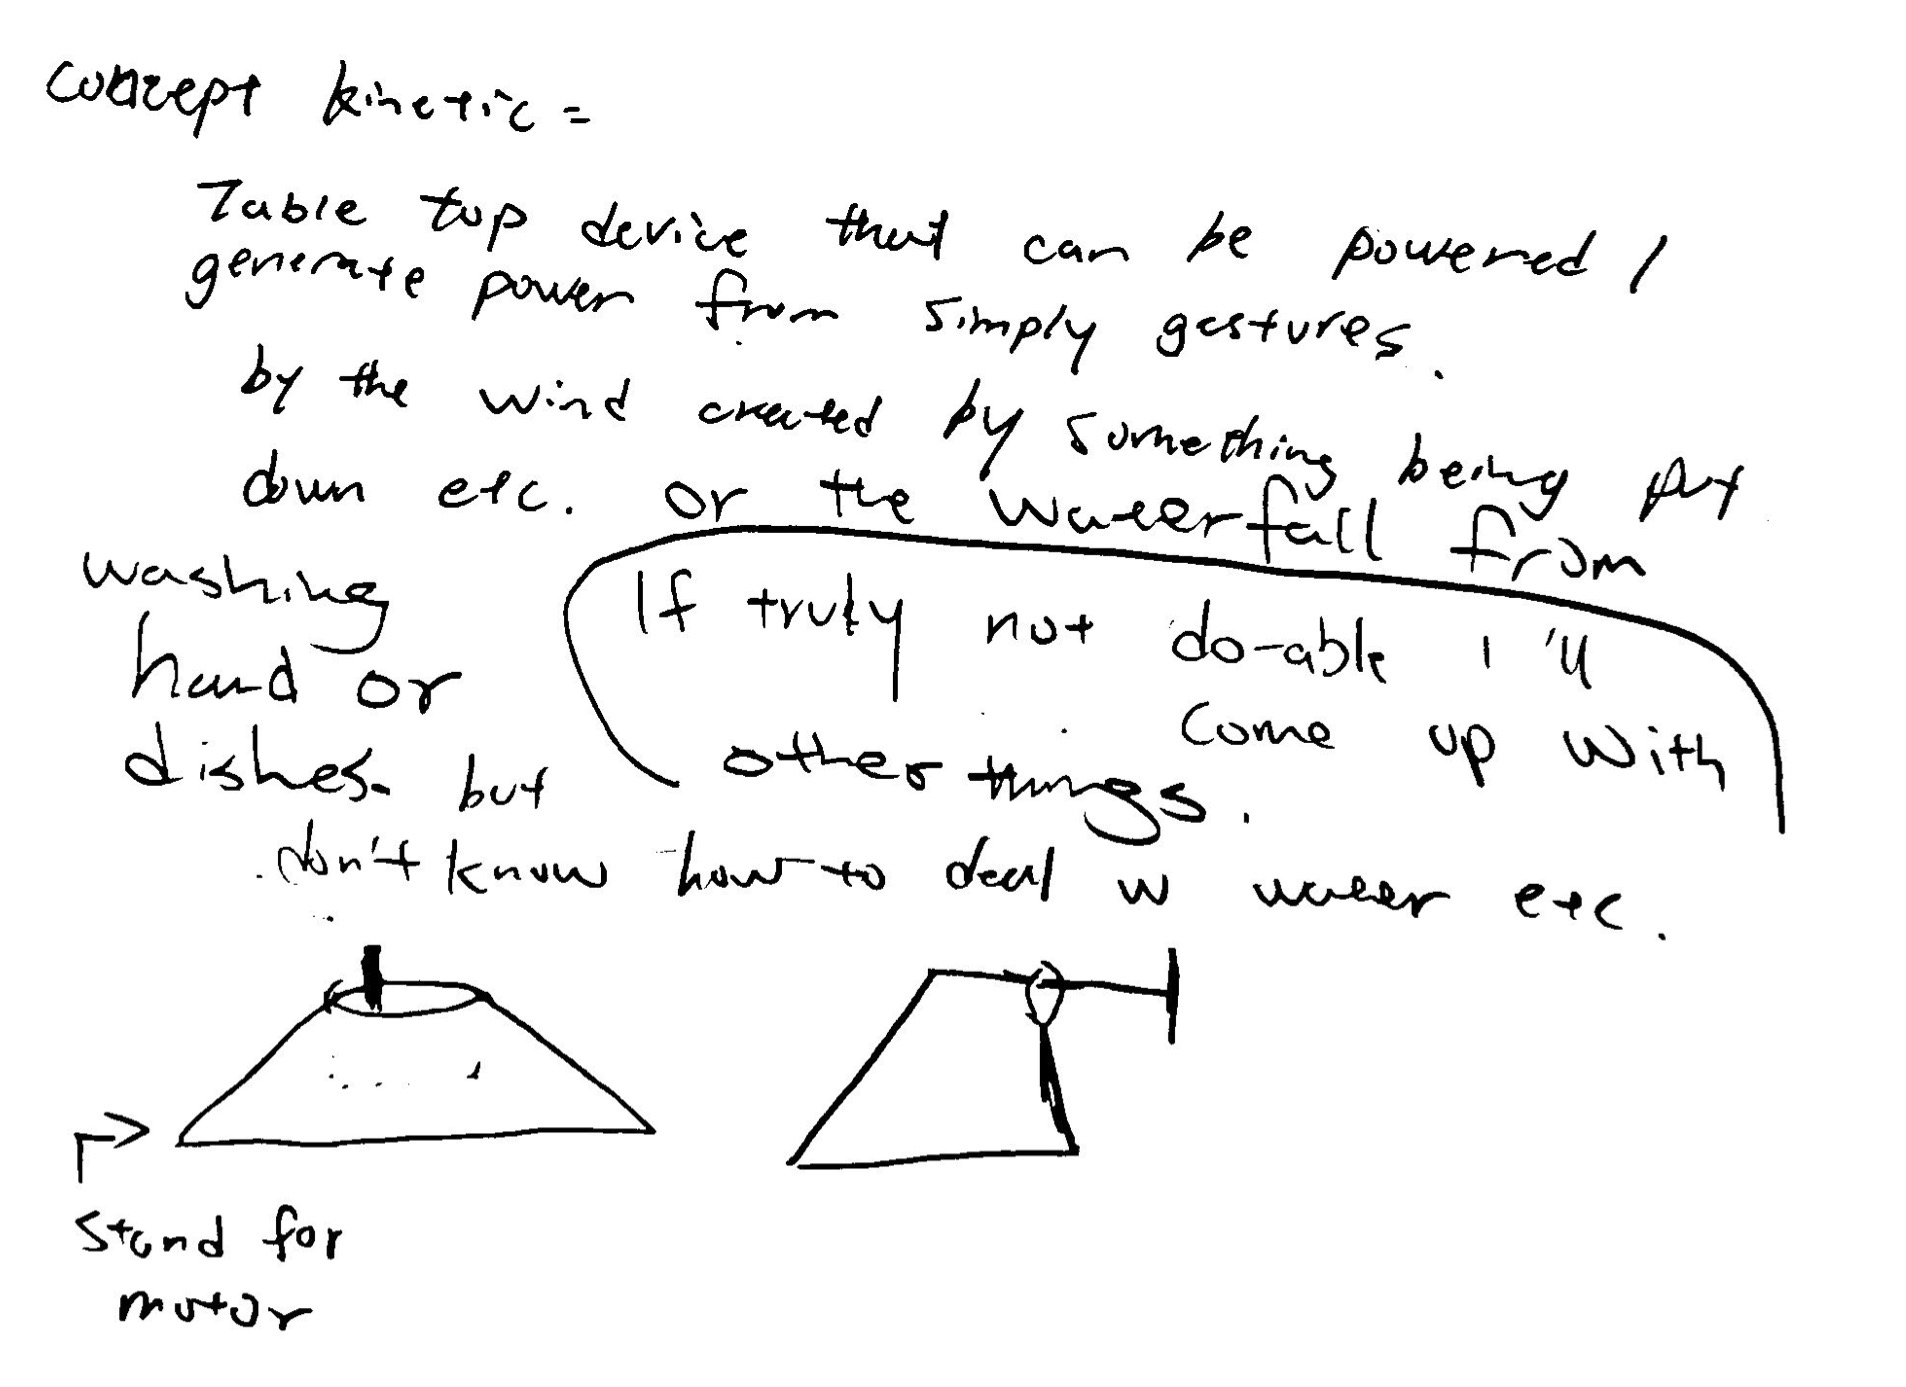 concept kinetic =
Table top device that can be powered /
generate power from simply gestures.
by the wind created by something being put
down etc. or the waterfall from
washing
hand or
dishes. but
don't know how to deal w water etc.
If truly not do-able I'll
come up with
other things.
stand for
motor